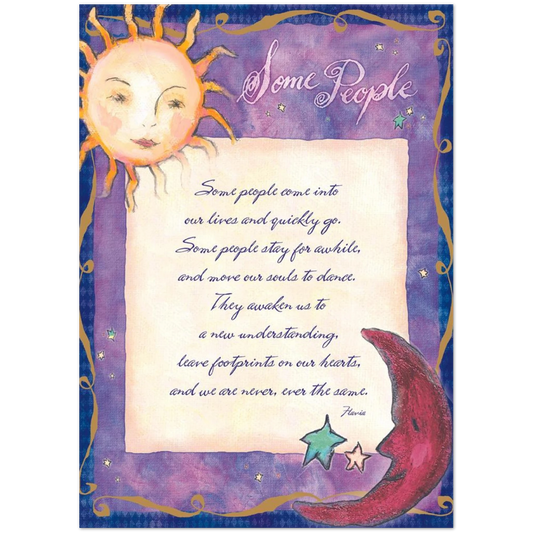 Some People
Some people come into
our lives and quickly go.
Some people stay for awhile,
and move our souls to dance.
They awaken us to
a new understanding,
leave footprints on our hearts,
and we are never, ever the same.
Flavia